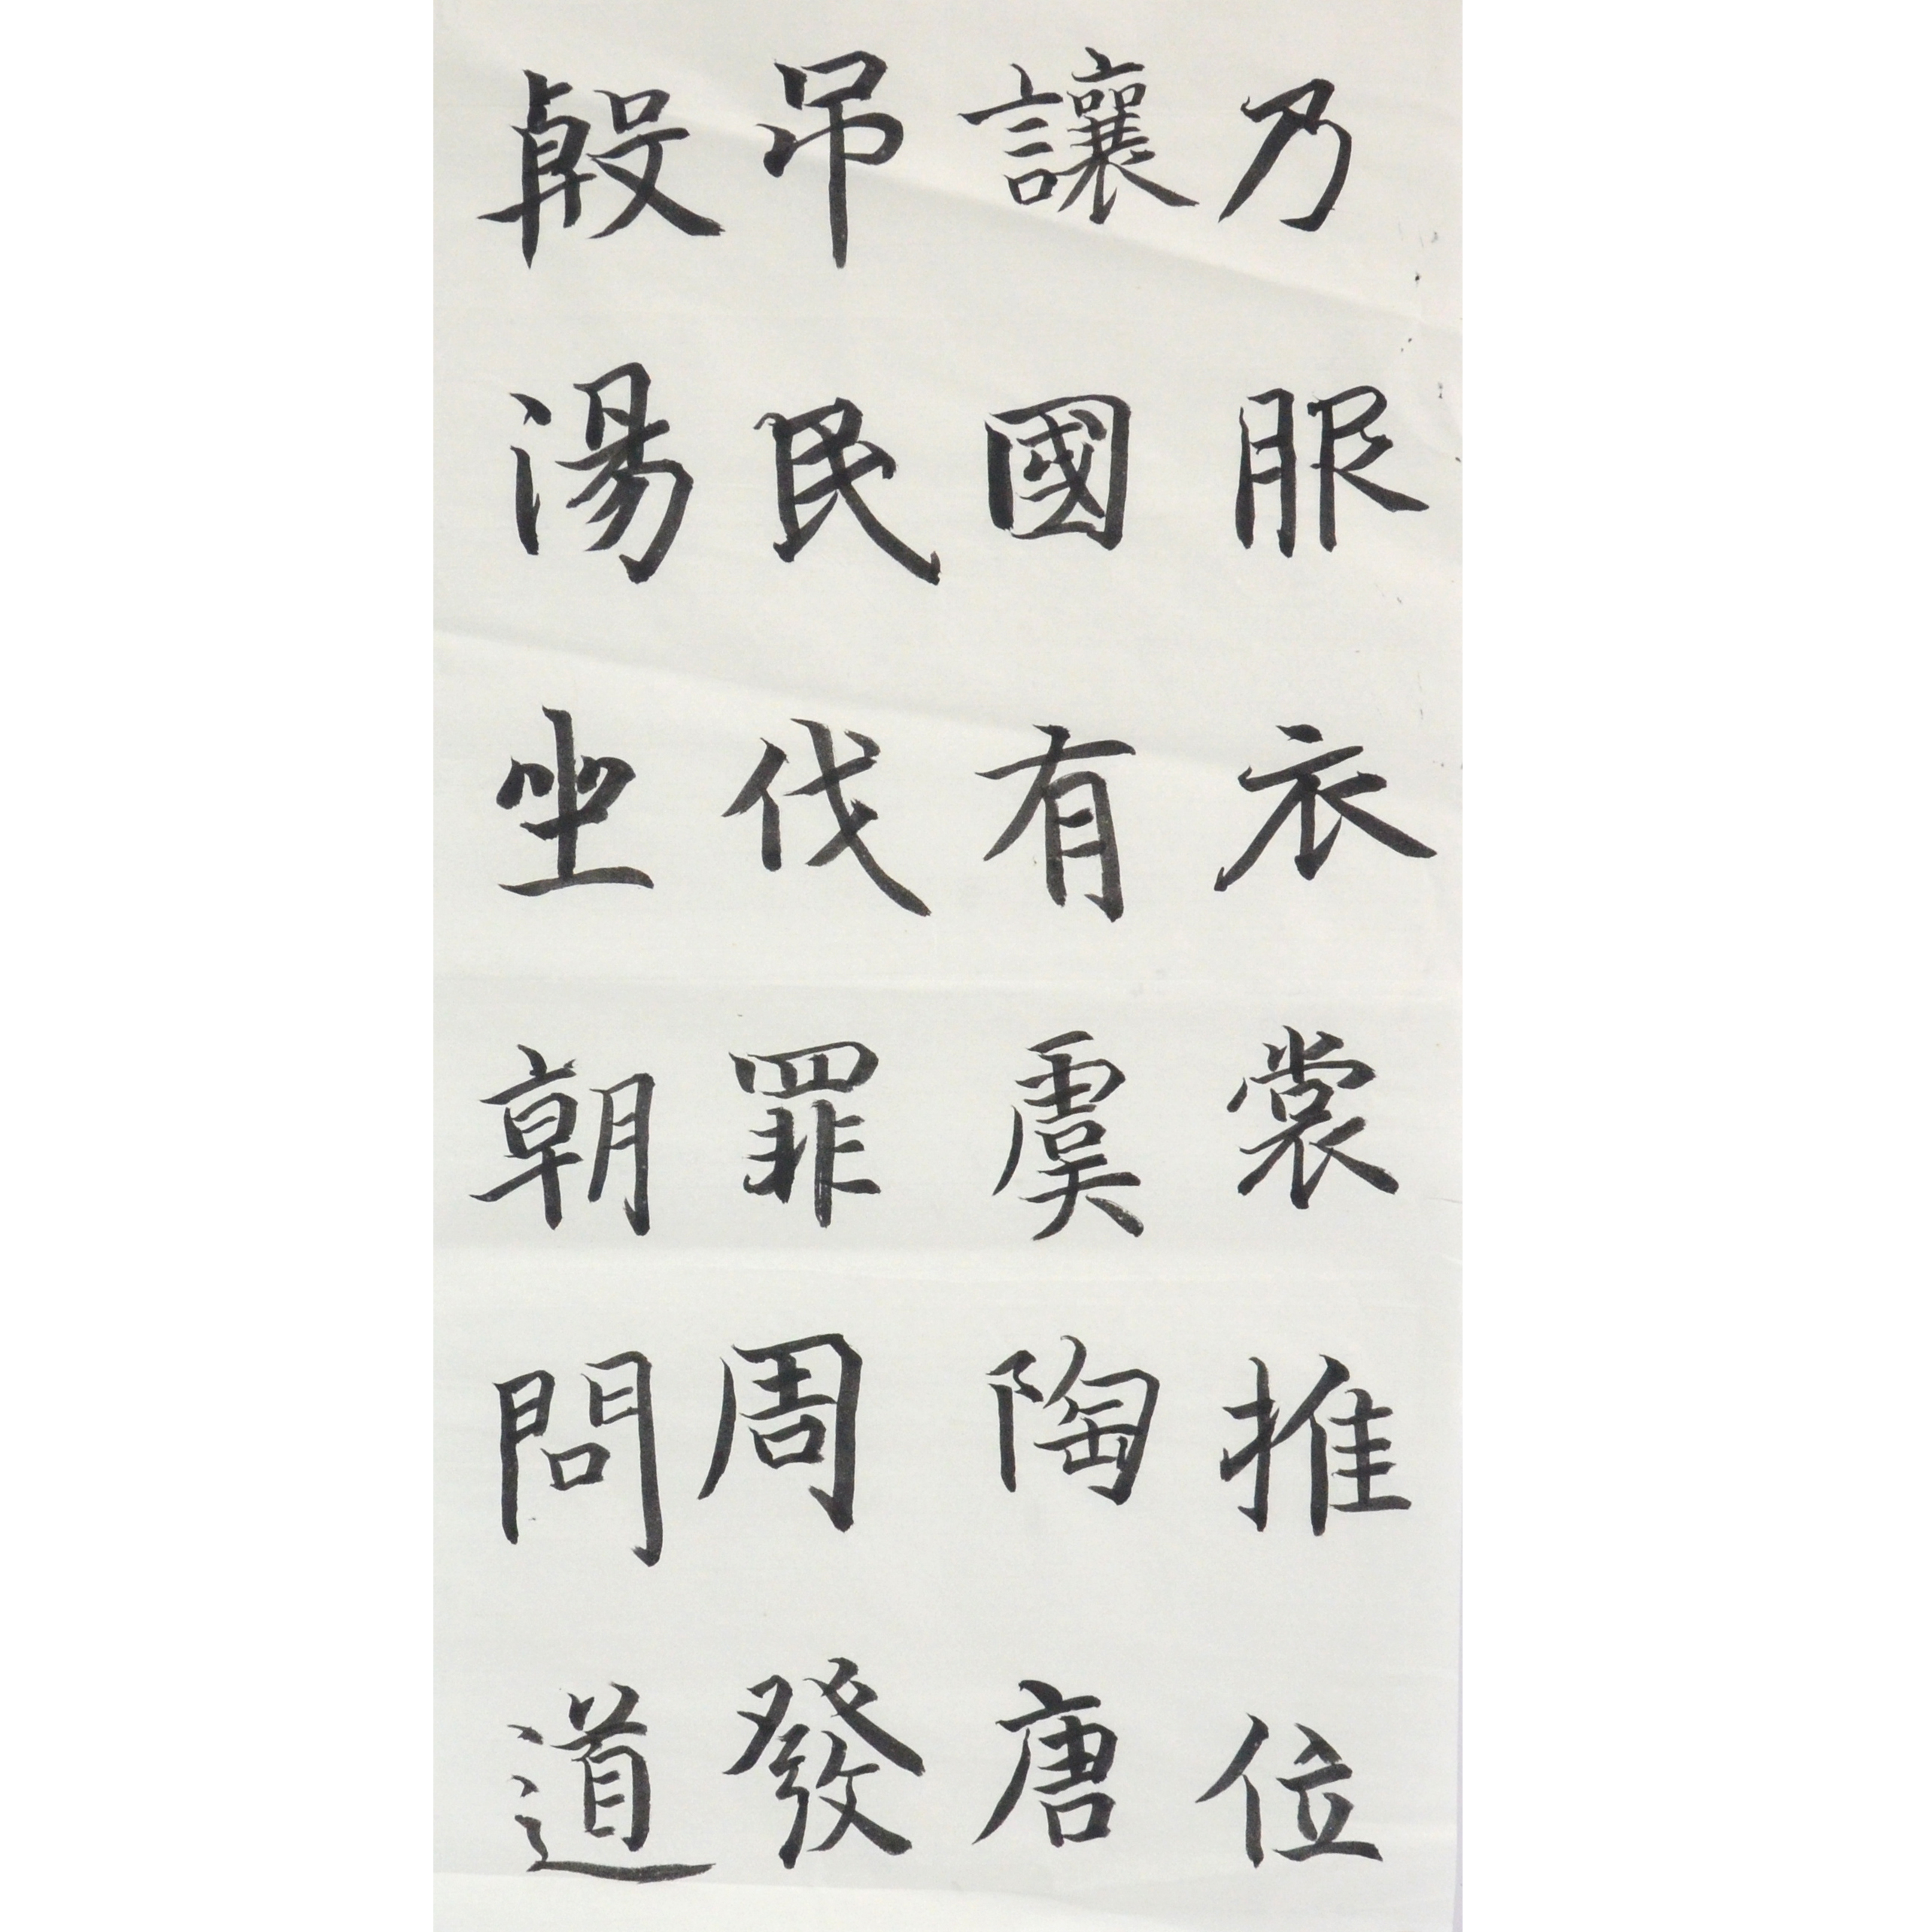 乃服衣裳推位
讓國有虞陶唐
吊民伐罪周發
殷湯坐朝問道